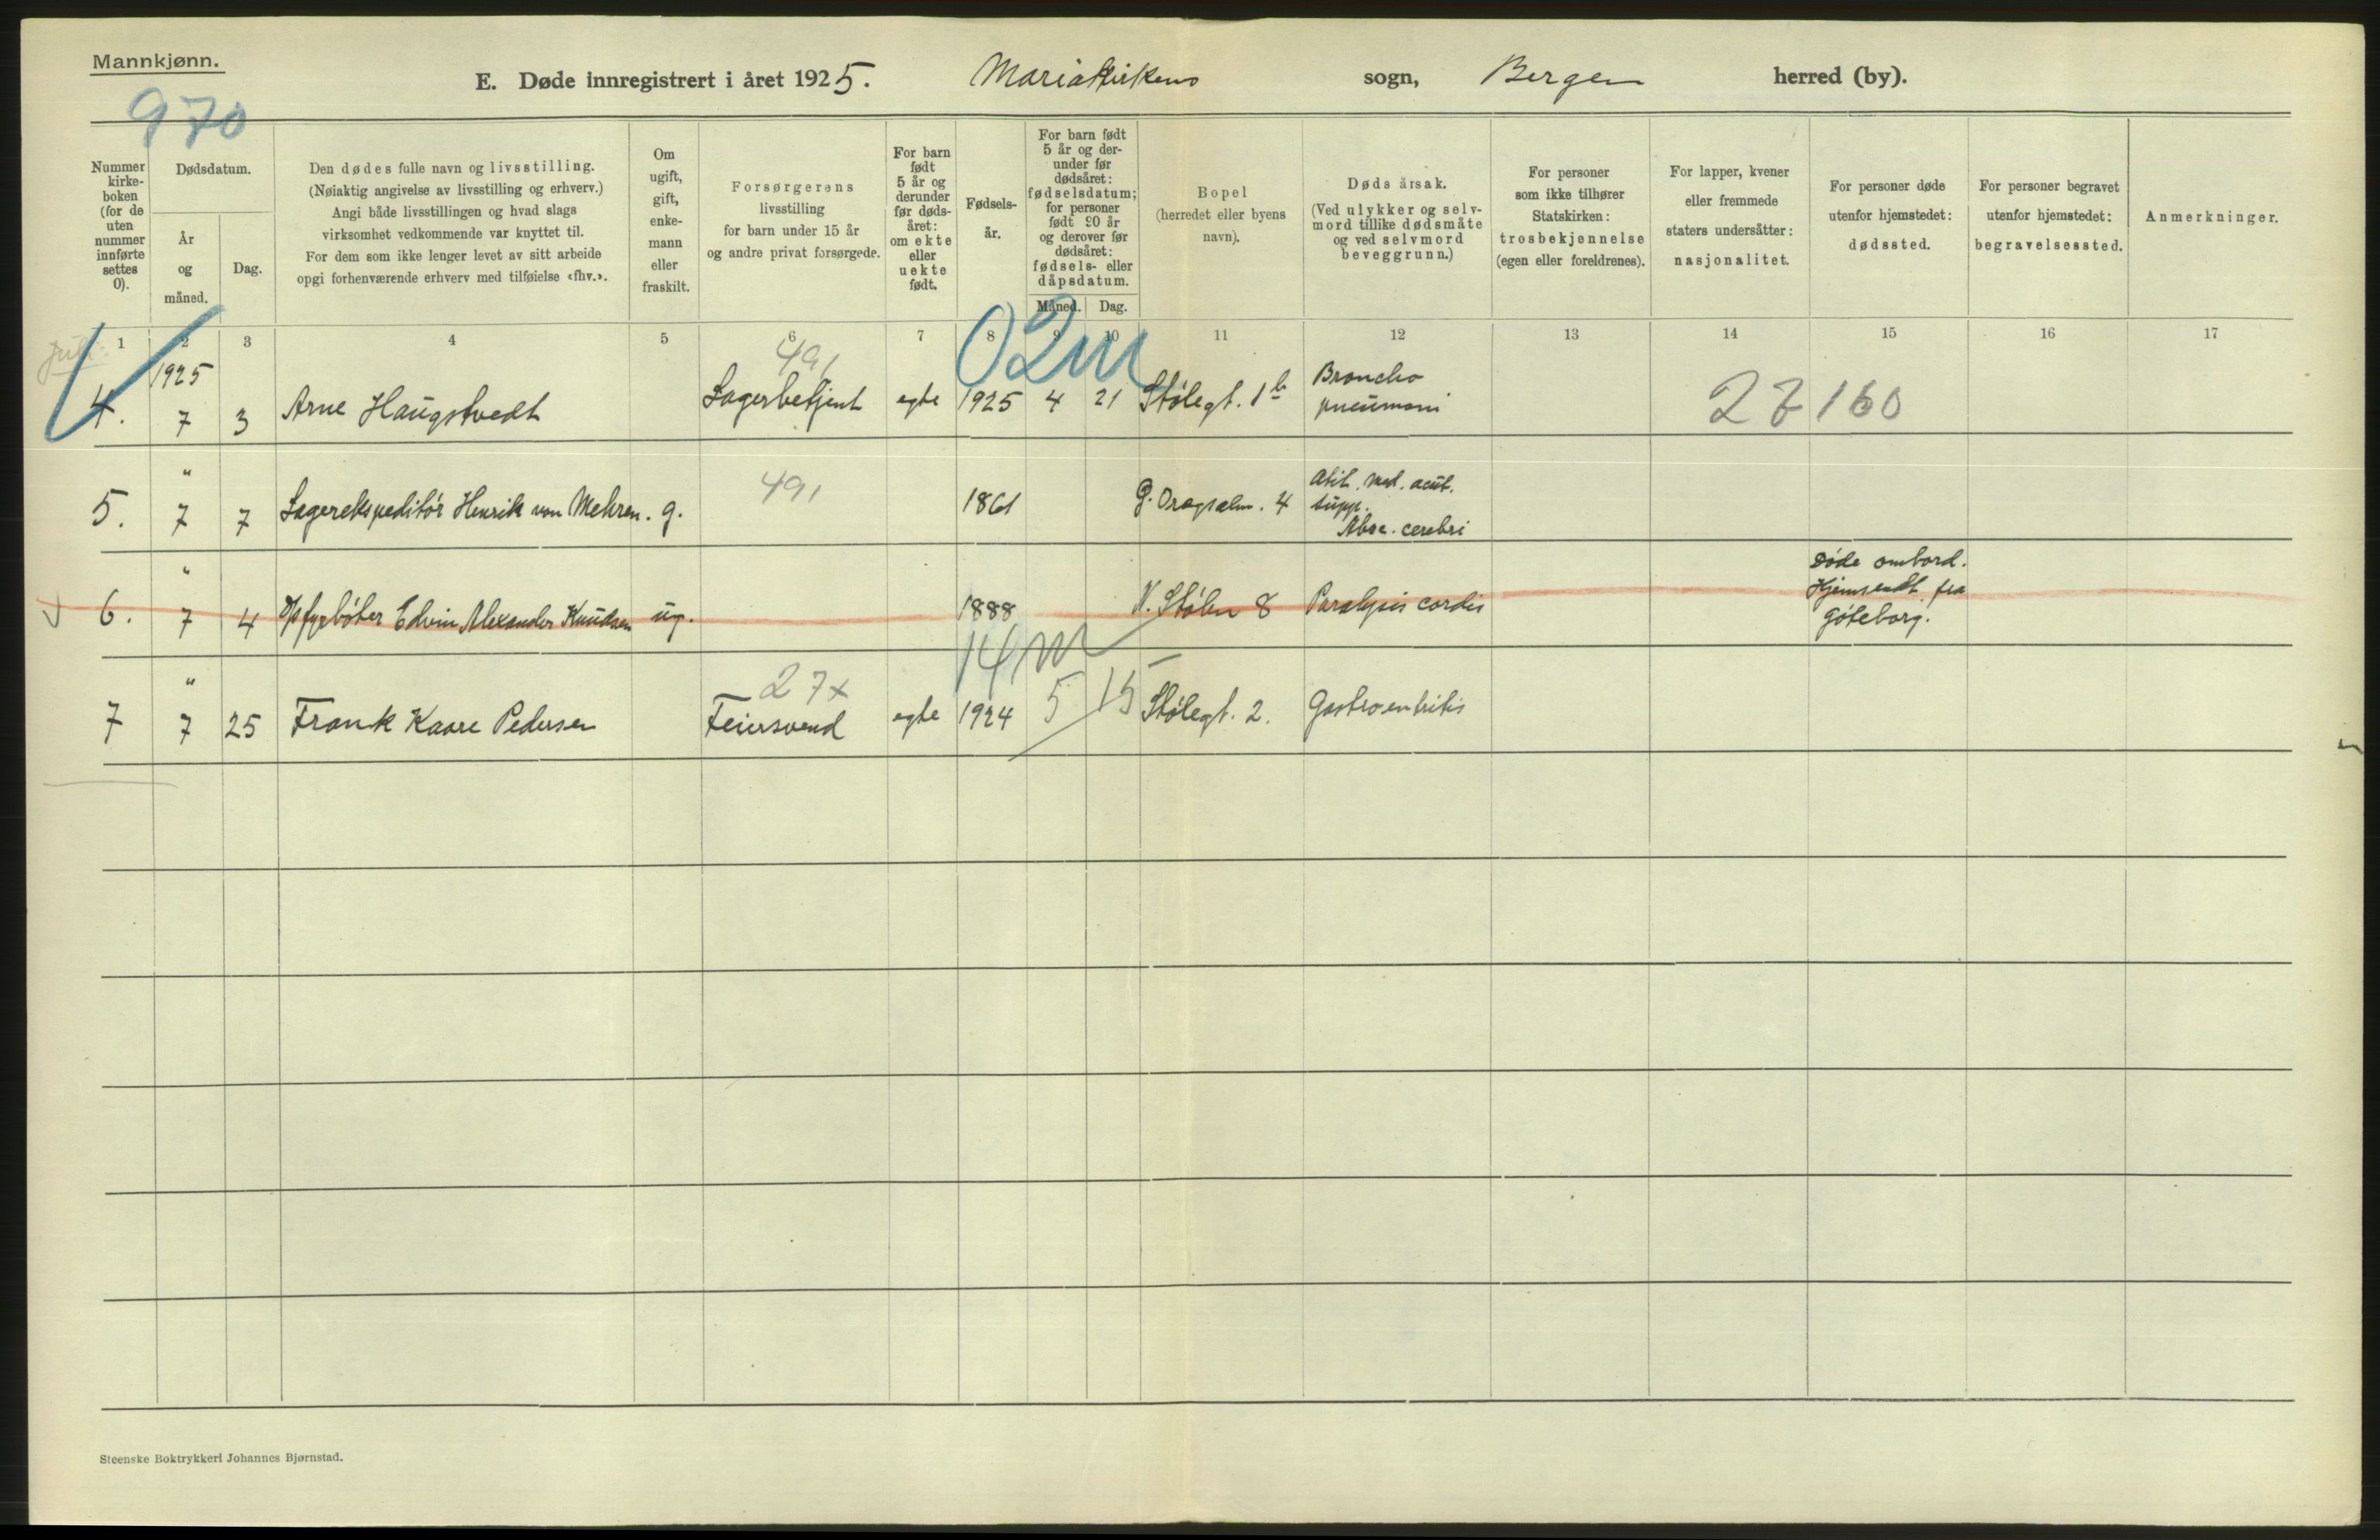 Mannkjønn.
E. Døde innregistrert i året 1925. Mariakirkens sogn, Bergen herred (by).
970
Nummer
kirke-
boken
(for de
uten
nummer
innførte
settes
0).
Dødsdatum.
År
og
måned.
Dag.
Den dødes fulle navn og livsstilling.
(Nøiaktig angivelse av livsstilling og erhverv.)
Angi både livsstillingen og hvad slags
virksomhet vedkommende var knyttet til.
For dem som ikke lenger levet av sitt arbeide
opgi forhenværende erhverv med tilføielse «fhv.».
Om
ugift,
gift,
enke-
mann
eller
fraskilt.
Forsørgerens
livsstilling
for barn under 15 år
og andre privat forsørgede.
For barn
født
5 år og
derunder
før døds-
året:
om ekte
eller
uekte
født.
Fødsels-
år.
For barn født
5 år og der-
under før
dødsåret:
fødselsdatum;
for personer
født 90 år
og derover før
dødsåret:
fødsels- eller
dåpsdatum.
Måned. Dag.
Bopel
(herredet eller byens
navn).
Dødsårsak.
(Ved ulykker og selv-
mord tillike dødsmåte
og ved selvmord
beveggrunn.)
For personer
som ikke tilhører
Statskirken:
trosbekjennelse
(egen eller foreldrenes).
For lapper, kvener
eller fremmede
staters undersåtter:
nasjonalitet.
For personer døde
utenfor hjemstedet:
dødssted.
For personer begravet
utenfor hjemstedet:
begravelsessted.
Anmerkninger.
1 2 3 4 5 6 7 8 9 10 11 12 13 14 15 16 17
Juli
1925
491
02m
Broncho
4. 7 3 Arne Haugstvedt Lagerbetjent egte 1925 4 21 Stølegt. 1b pneumoni
27160
"
491
Otit. med. acut.
5. 7 7 Lagerekspeditör Henrik von Mehren. g. 1861 Ö. Dregsalm. 4 supp.
Absc. cerebri
"
Døde ombord.
Hjemsendt fra
6. 7 4 D/s fyrbøter Edvin Alexander Knudsen ug. 1888 N. Stølen 8 Paralysis cordis Göteborg.
14m
"
27x
7 7 25 Frank Kaare Pedersen Feiersvend egte 1924 5 15 Stølegt. 2. Gastroenteritis
Steenske Boktrykkeri Johannes Bjørnstad.